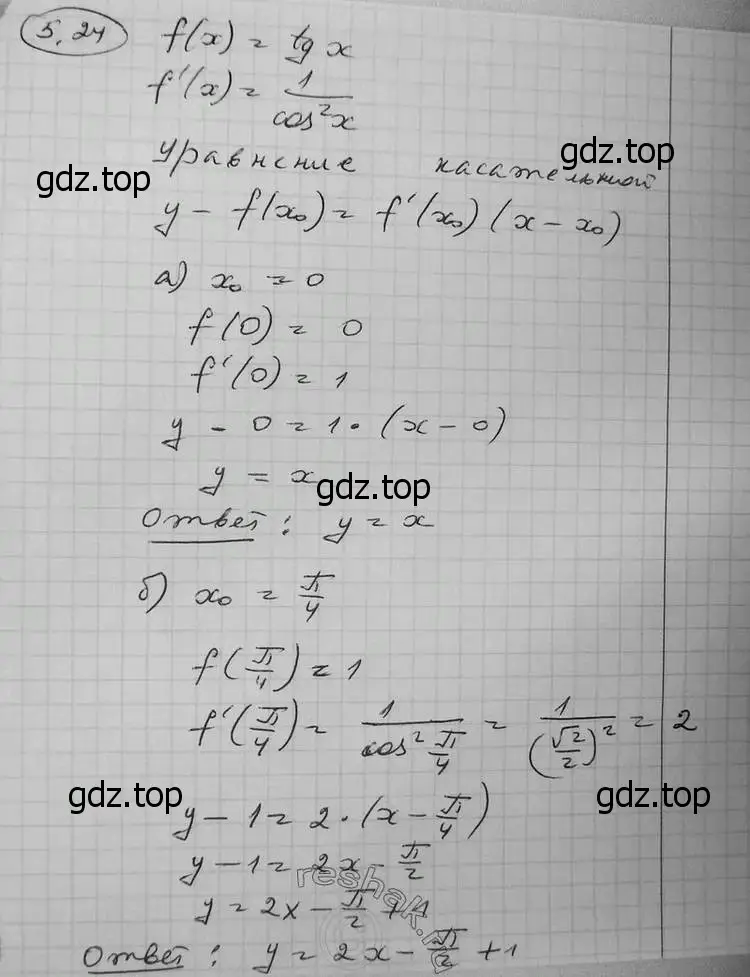 5.24 f(x) = tg x
f'(x) = 1/cos²x
Уравнение касательной
gdz.top gdz.top
y - f(x₀) = f'(x₀)(x - x₀)
а) x₀ = 0
f(0) = 0
f'(0) = 1
y - 0 = 1·(x - 0)
y = x
gdz.top
Ответ: y = x
б) x₀ = π/4
f(π/4) = 1
f'(π/4) = 1/cos² π/4 = 1/(√2/2)² = 2
gdz.top gdz.top
y - 1 = 2·(x - π/4)
y - 1 = 2x - π/2
reshak.ru
y = 2x - π/2 + 1
Ответ: y = 2x - π/2 + 1